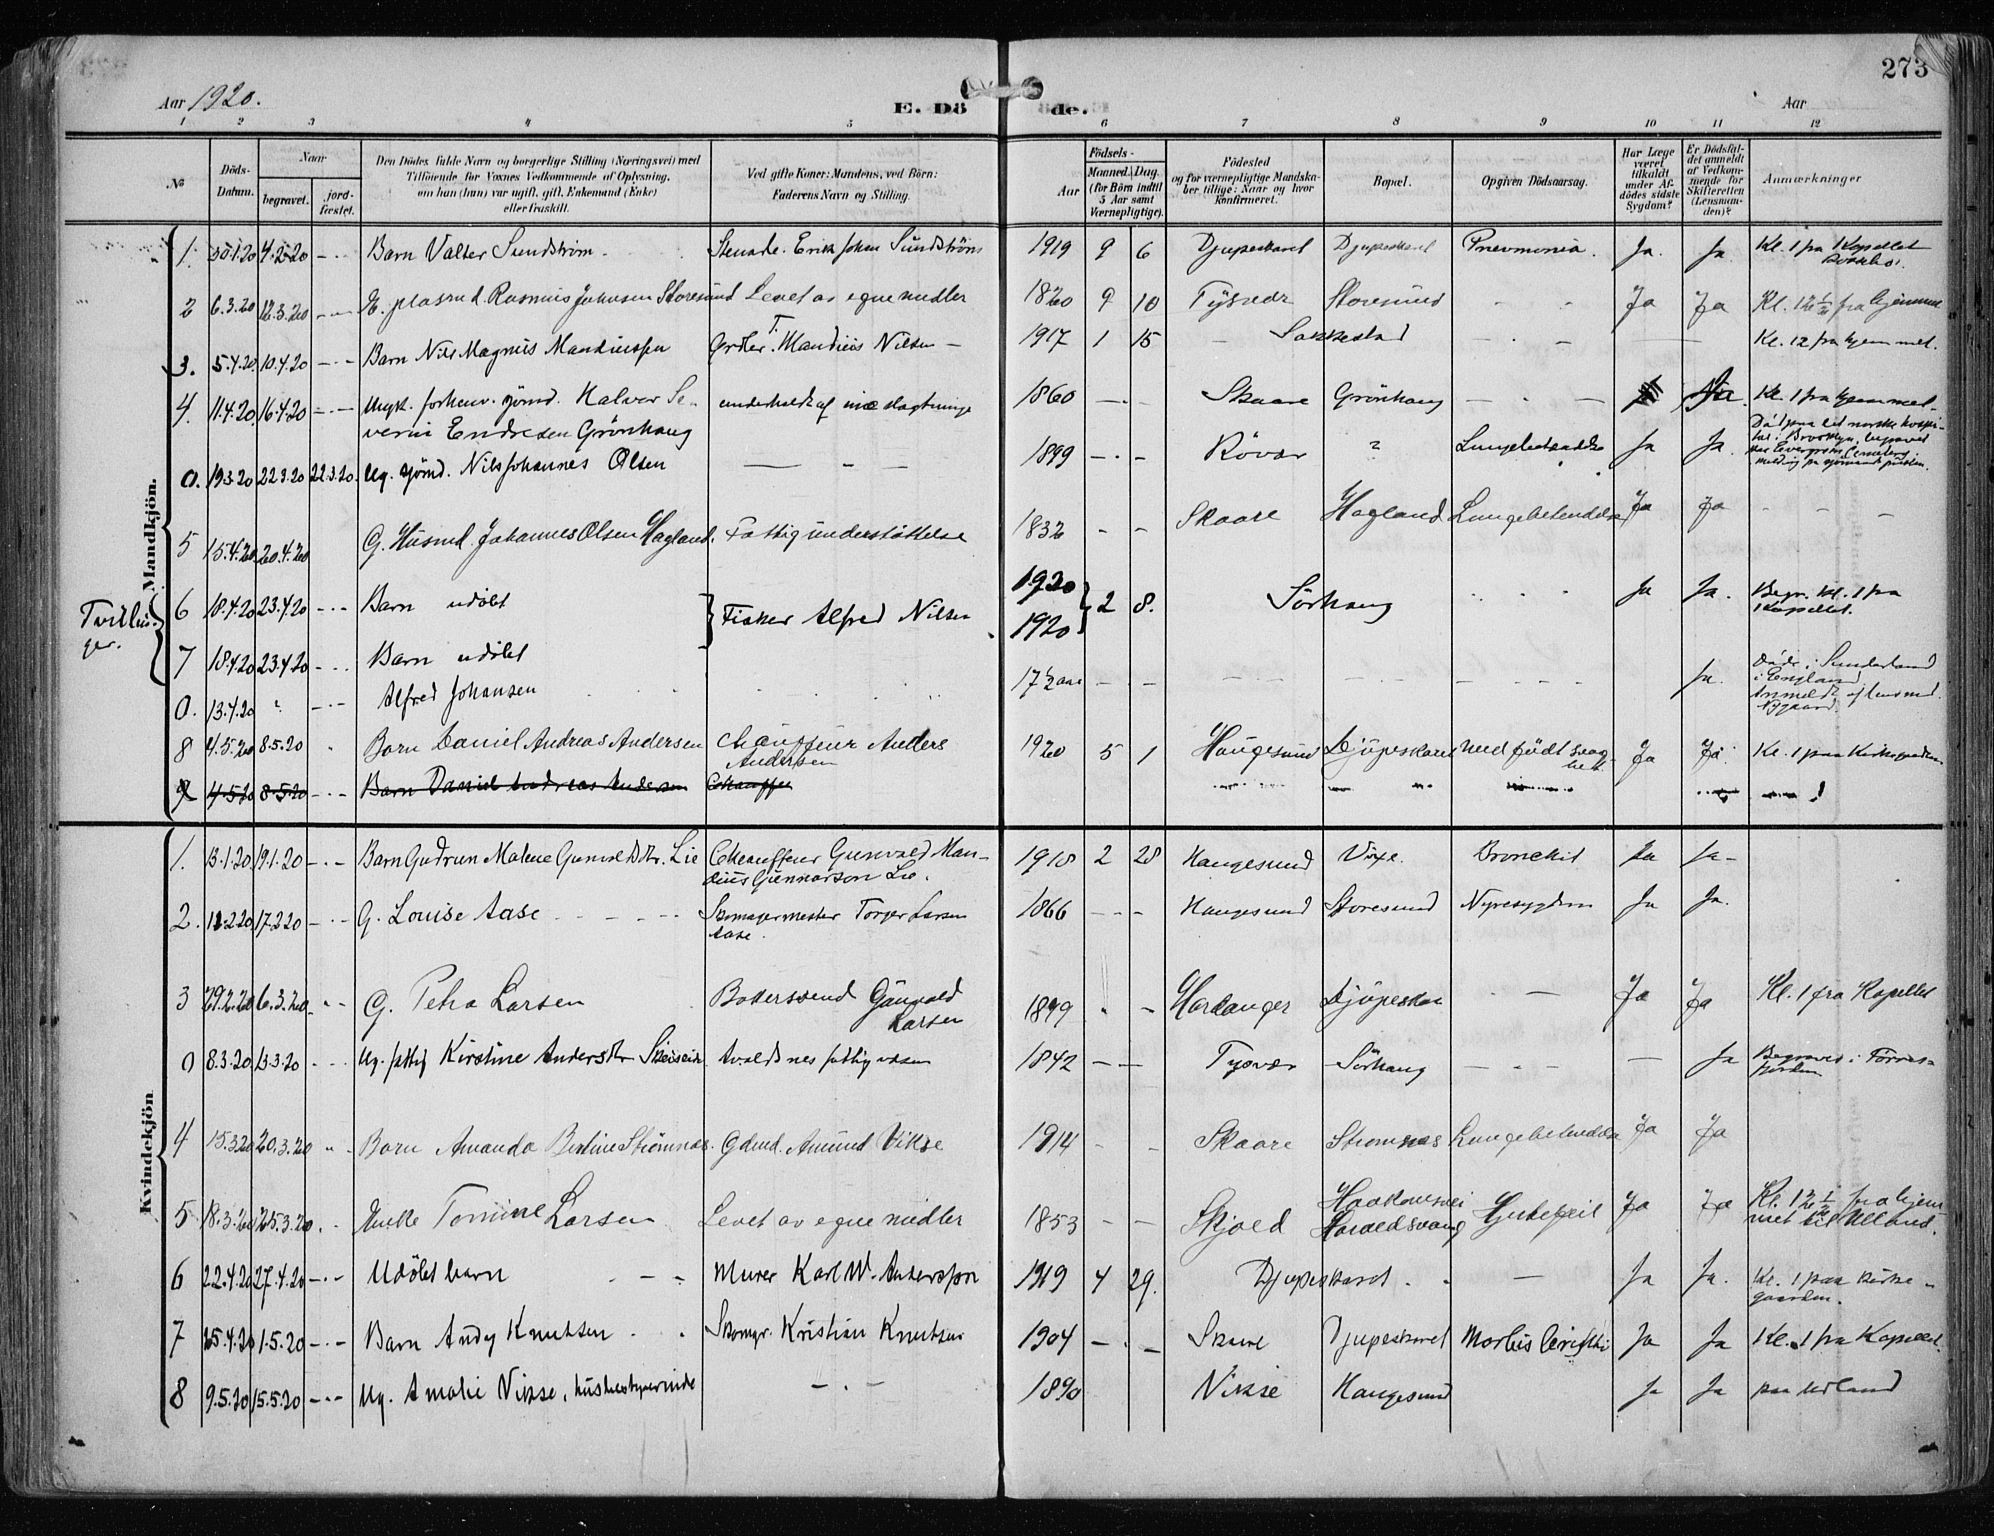 273
Aar 1920.
E. Dö de.
Aar
1 2 3 4 5 6 7 8 9 10 11 12
No
Döds-Datum.
Naar
begravet.
jord-fæstet.
Den Dödes fulde Navn og borgerlige Stilling (Næringsvei) med
Tilföiende for Voxnes Vedkommende af Oplysning,
om han (hun) var ugift, gift, Enkemand (Enke)
eller fraskilt.
Ved gifte Koner: Mandens, ved Börn:
Faderens Navn og Stilling.
Födsels-
Aar
Maaned. Dag.
(for Börn indtil
5 Aar samt
Værnepligtige).
Födested
og for værnepligtige Mandska-
ber tillige: Naar og hvor
konfirmeret.
Bopæl.
Opgiven Dödsaarsag.
Har Læge
været
tilkaldt
under Af-
dödes sidste
Sygdom?
Er Dödsfal-
det anmeldt
af Vedkom-
mende for
Skifteretten
(Lensman-
den)?
Anmærkninger
Mandkjön.
1. 30.1.20 4.2.20 Barn Valter Sundström. Erik Johan Sundström 1919 9 6 Djupeskaret Djupeskaret Pnevmonia. Ja. Ja Kl. 1 fra Kapellet
2 6.3.20 12.3.20 Rasmus Johnsen Storesund Levet av egne midler 1820 9 10 Tysvær Storesund Ja Ja Kl. 12 1/2 fra hjemmet
3. 5.4.20 10.4.20 Barn Nils Magnus Mandiussen Mandius Nilsen 1917 1 15 Sakkestad Kl. 12 fra hjemmet.
4. 11.4.20 16.4.20 Ungk. forhenv. sjömd. Halvor Se-
verin Endresen Grönhaug 1860 Skaare Grönhaug Ja Kl. 1 fra hjemmet.
0. 19.3.20 22.3.20 22.3.20. Ug. sjömd. Nils Johannes Olsen 1899 Rövær " Lungebetændelse Ja Ja. Död paa det norske hospi-
tal i Brooklyn, begravet
5 15.4.20 20.4.20 G. Husmd. Johannes Olsen Hagland. Fattigunderstøttelse 1832 Skaare Hagland Lungebetendelse Ja Ja
Tvillin-
ger.
6 18.4.20 23.4.20 Barn udöbt Fisker Alfred Nilsen 1920 2 8. Sörhaug Ja Ja. Begr. kl. 1 fra
Kapellet.
7 18.4.20 23.4.20 Barn udöbt 1920
0. 13.4.20 " Alfred Johansen 17 1/2 aar Ja. Döde i Sunderland
i England.
8 4.5.20 8.5.20 Barn Daniel Andreas Andersen Chauffeur Anders
Andersen 1920 5 1 Haugesund Djupeskaret Medfødt svag-
het Ja Ja Kl. 1 paa Kirkegaarden
9 4.5.20 8.5.20 Barn Daniel Andreas Andersen Chauffer
Kvindekjön
1. 13.1.20 19.1.20 Barn Gudrun Malene Gunvaldsdtr. Lie Chauffeur Gunvald Man-
dius Gunnarson Lie. 1918 2 28 Haugesund Vixe. Bronchit Ja Ja
2. 12.2.20 17.2.20 G. Louise Aase Skomagermester Torger Larsen
Aase. 1866 Haugesund Storesund Nyresygdom Ja Ja.
3 29.2.20 6.3.20 G. Petra Larsen Bakersvend Gunvald
Larsen 1899 Hardanger Djupeskar Ja Ja Kl. 1 fra Kapellet
0 8.3.20 13.3.20 Ug. fattig Kirstine Andersdtr. Avaldsnes fattigvæsen 1842 Tysvær Sörhaug Ja Begravet i Förres-
fjorden
4 15.3.20 20.3.20 Barn Amanda Bertine Strømnæs. Gdmd. Amund Vikse 1914 Skaare Stromnes Lungebetendelse Ja Ja
5 18.3.20 25.3.20 Enke Tomine Larsen Levet av egne midler 1853 Skjold Haakonsvei
Haraldsvang Hjertefeil Ja Ja Kl. 12 1/2 fra hjem-
met til Udland.
6 22.4.20 27.4.20 Udöbt barn Murer Karl W. Anderssen 1919 4 29. Djupeskaret. Ja Ja. Kl. 1 paa kirke-
gaarden.
7 25.4.20 1.5.20 Barn Andy Knutsen Skomgr. Kristian Knutsen 1904 Skaare Djupeskaret Morbus Ja Ja Kl. 1 fra Kapellet.
8 9.5.20 15.5.20 Ug. Amalie Vikse, husbestyrerinde 1890 Vikse Haugesund Ja Ja paa Udland